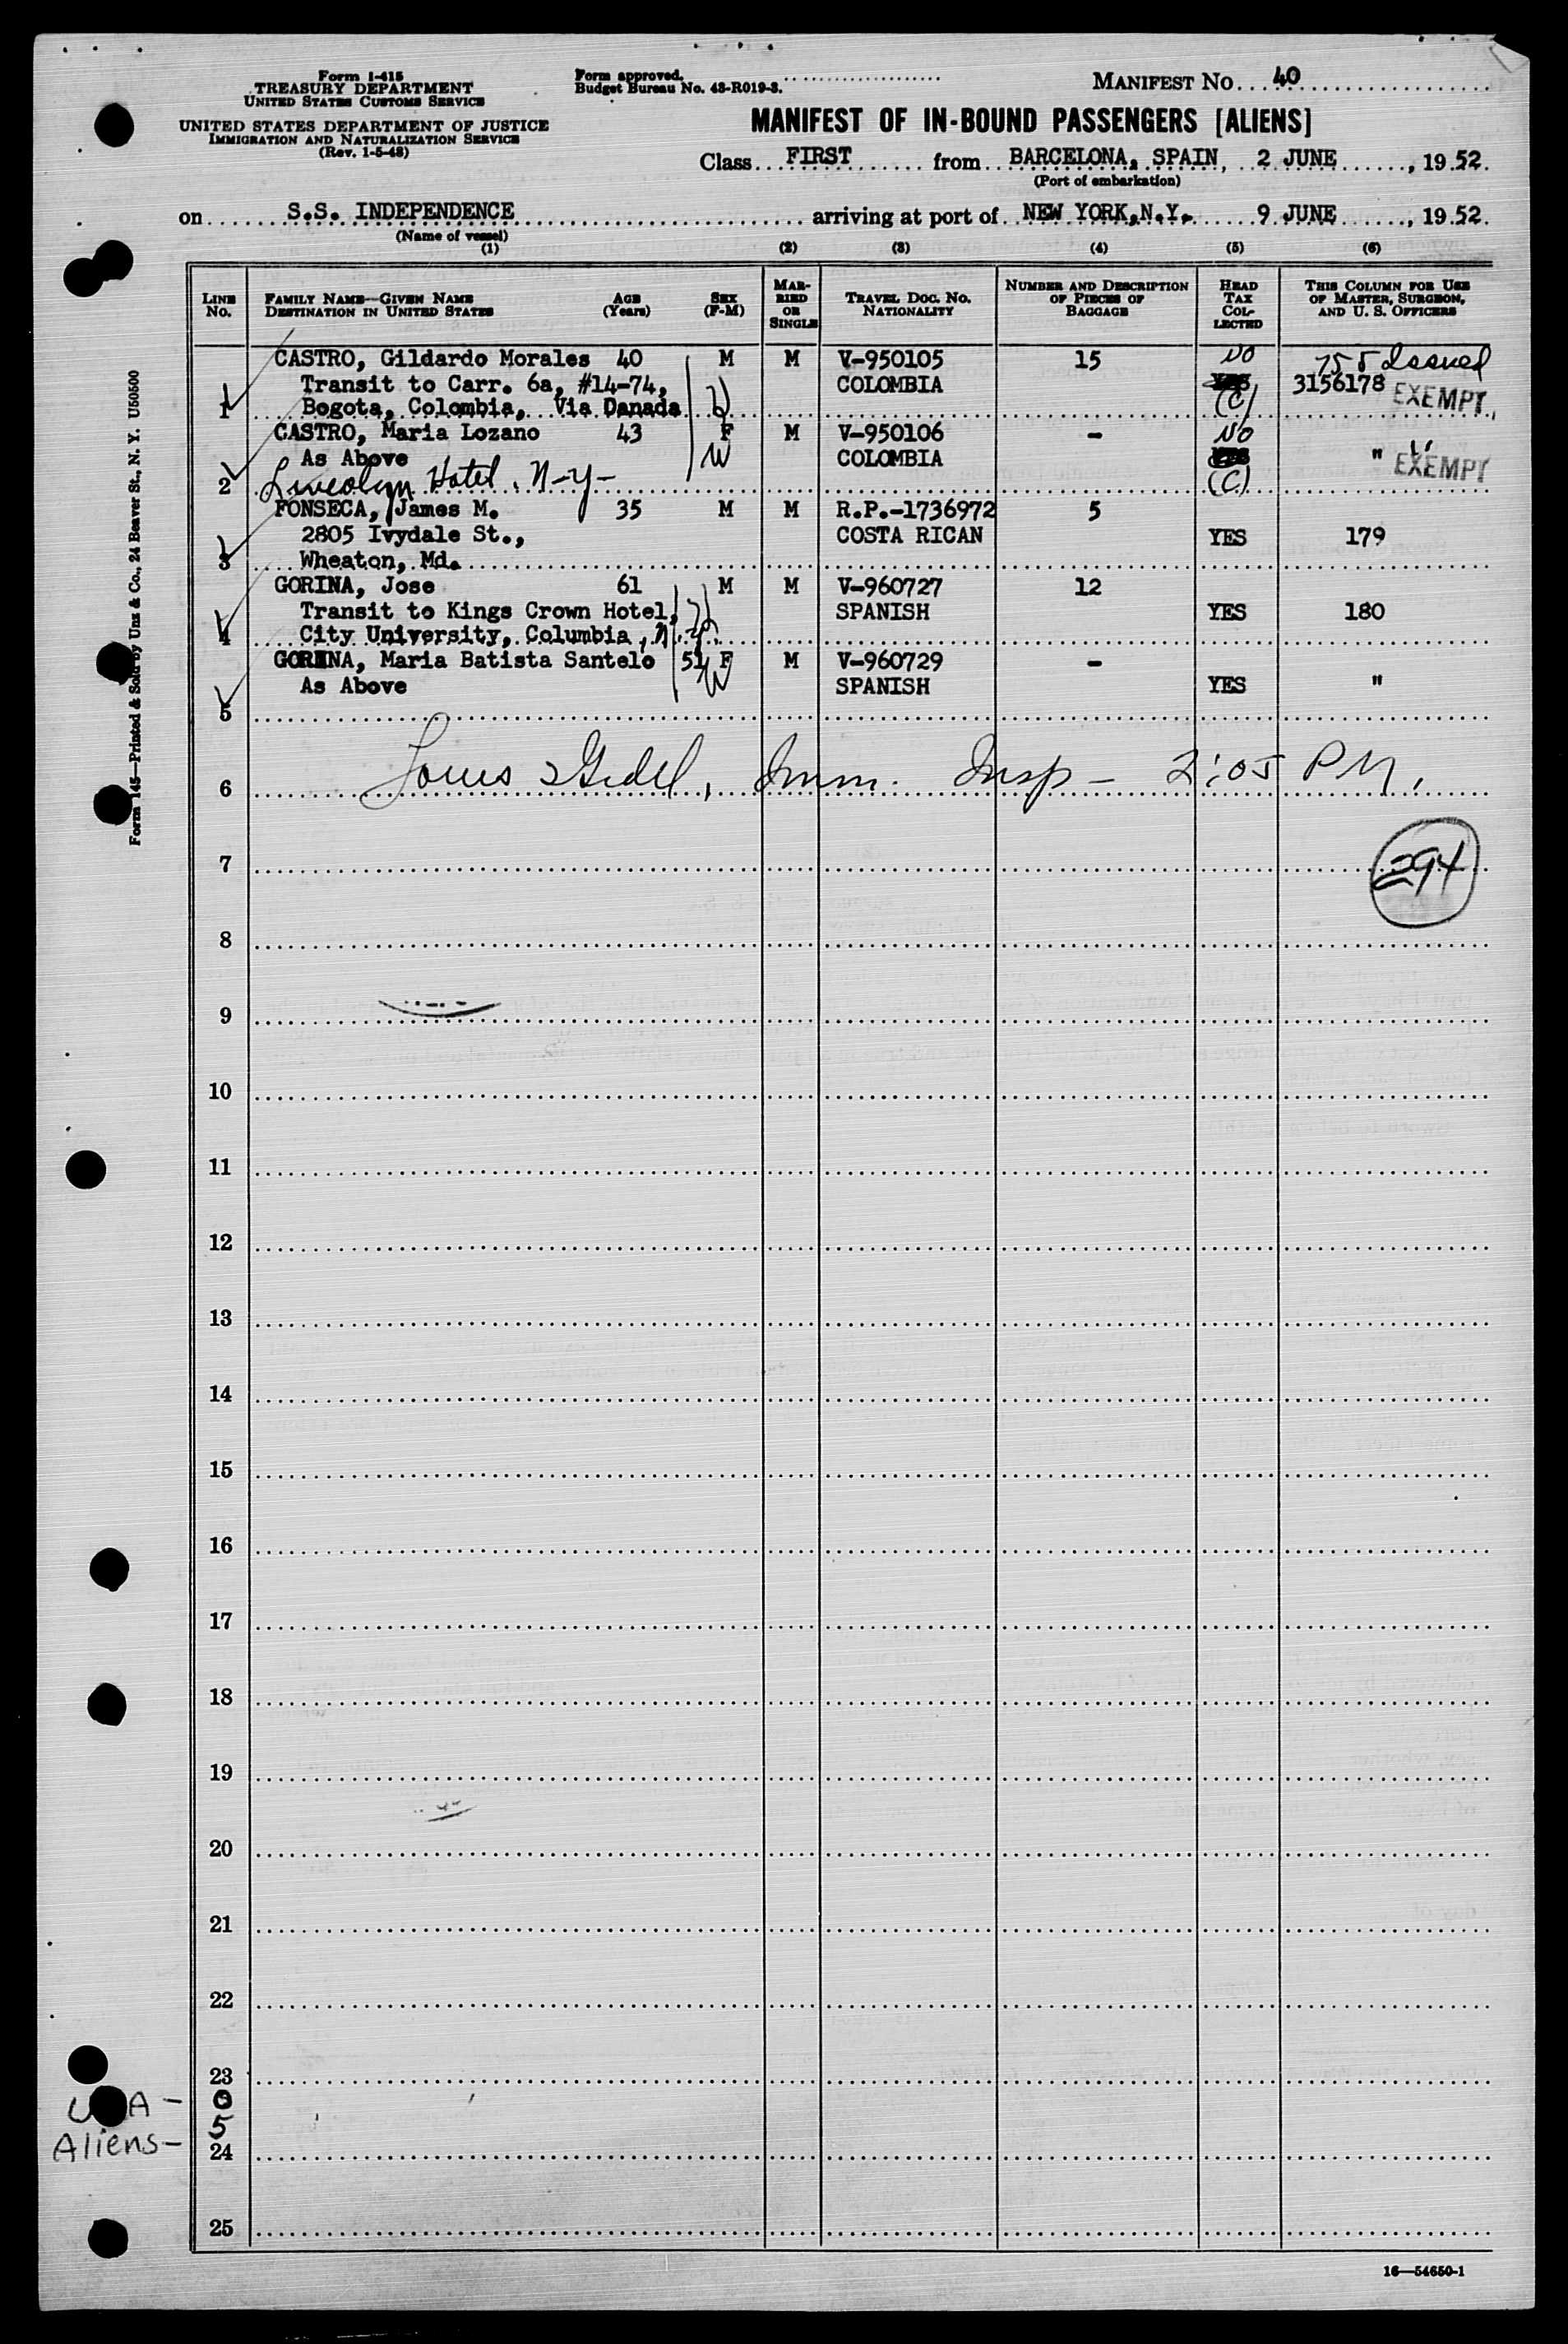 Form I-415
TREASURY DEPARTMENT
UNITED STATES CUSTOMS SERVICE
UNITED STATES DEPARTMENT OF JUSTICE
IMMIGRATION AND NATURALIZATION SERVICE
(Rev. 1-5-48)
Form approved.
Budget Bureau No. 43-R019-3.
MANIFEST NO. 40
MANIFEST OF IN-BOUND PASSENGERS [ALIENS]
Class FIRST from BARCELONA, SPAIN, 2 JUNE, 1952.
(Port of embarkation)
on S.S. INDEPENDENCE arriving at port of NEW YORK, N.Y. 9 JUNE, 1952.
(Name of vessel)
(1) (2) (3) (4) (5) (6)
LINE NO. FAMILY NAME—GIVEN NAME DESTINATION IN UNITED STATES AGE (Years) SEX (F-M) MARRIED OR SINGLE TRAVEL DOC. NO. NATIONALITY NUMBER AND DESCRIPTION OF PIECES OF BAGGAGE HEAD TAX COLLECTED THIS COLUMN FOR USE OF MASTER, SURGEON, AND U. S. OFFICERS
CASTRO, Gildardo Morales 40 M M V-950105 15 NO Issued
Transit to Carr. 6a, #14-74, COLOMBIA YES 3156178 EXEMPT
1 Bogota, Colombia, Via Danada W (C)
CASTRO, Maria Lozano 43 F M V-950106 - NO
As Above W COLOMBIA YES " " EXEMPT
2 Lincoln Hotel, N-Y- (C)
FONSECA, James M. 35 M M R.P.-1736972 5
2805 Ivydale St., COSTA RICAN YES 179
3 Wheaton, Md.
GORINA, Jose 61 M M V-960727 12
Transit to Kings Crown Hotel, SPANISH YES 180
4 City University, Columbia, N.Y.
GORINA, Maria Batista Santelo 51 F M V-960729 -
As Above W SPANISH YES "
5
6 Imm. Insp - 2:05 PM.
7 294
8
9
10
11
12
13
14
15
16
17
18
19
20
21
22
23
USA - 0
Aliens - 5
24
25
16—54650-1
Form 145—Printed & Sold by Unz & Co., 24 Beaver St., N. Y. U50500